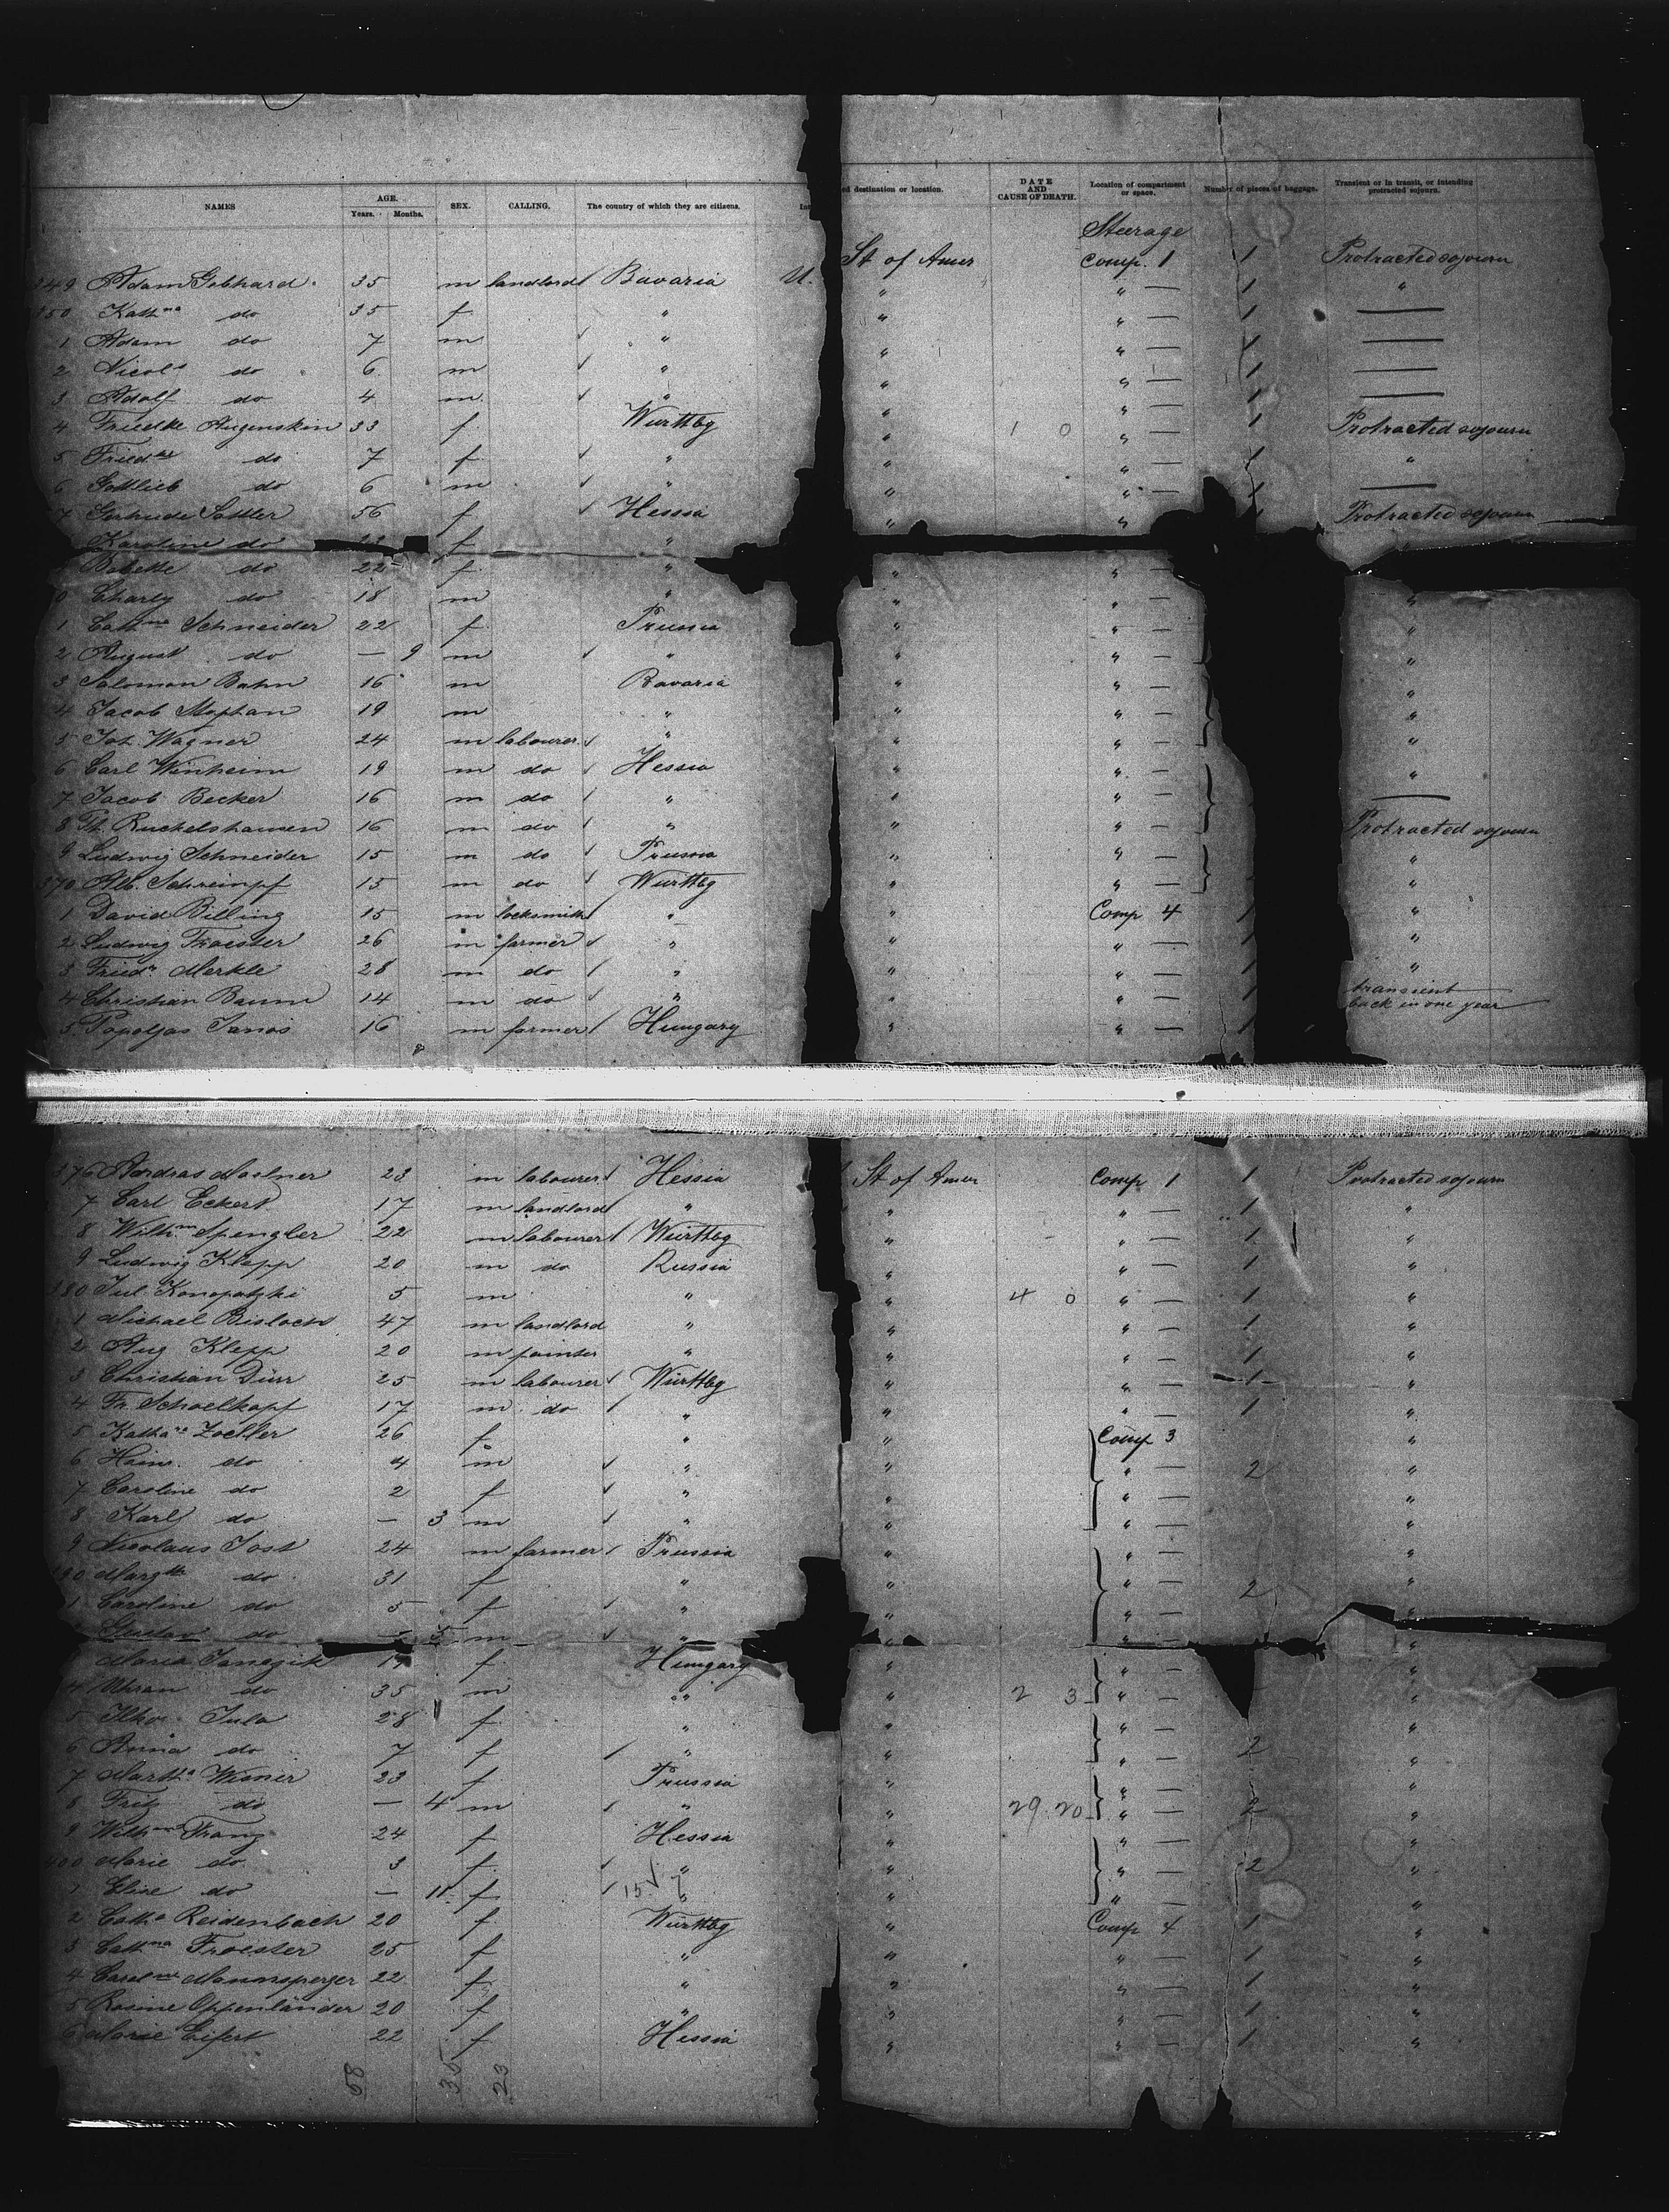 NAMES AGE. Years. Months. SEX. CALLING. The country of which they are citizens. ed destination or location. DATE AND CAUSE OF DEATH. Location of compartment or space. Number of pieces of baggage. Transient or in transit, or intending protracted sojourn.
Steerage
349 Adam Gebhard 35 m landlord Bavaria U. St of Amer Comp. 1 1 Protracted sojourn
350 Kathna do 35 f " " " — 1 "
1 Adam do 7 m " " " — 1 —
2 Nicols do 6 m " " " — 1 —
3 Adolf do 4 m " " " — 1 —
4 Friedke Augenstein 33 f Württbg " 1 0 " — 1 Protracted sojourn
5 do 7 f " " " — 1 "
6 Gottlieb do 6 m " " " — 1 —
7 Gertrude Sattler 56 f Hessia " " 1 Protracted sojourn
Karoline do f "
Babette do 22 f " " " —
0 Charly do 18 m " " " — "
1 Cathna Schneider 22 f Prussia " " — "
2 August do — 9 m " " " — "
3 Salomon Bahn 16 m Bavaria " " — "
4 Jacob 19 m " " " — "
5 Joh. Wagner 24 m labourer " " " — "
6 Carl 19 m do Hessia " " — "
7 Jacob Becker 16 m do " " " — —
8 Ruckelshausen 16 m do " " " — Protracted sojourn
9 Ludwig Schneider 15 m do Prussia " " — "
370 Alb. Schrimpf 15 m do Württbg " " — "
1 David Billing 15 m locksmith " " Comp 4 1 "
2 Ludwig Troester 26 m farmer " " " — 1 "
3 Friedr Merkle 28 m do " " " — 1 "
4 Christian Baum 14 m do " " " — 1 transient
back in one year
5 Janos 16 m farmer Hungary " " — 1
376 Andras 23 m labourer Hessia St of Amer Comp 1 1 Protracted sojourn
7 Carl Eckert 17 m landlord " " " — 1 "
8 Wilhm Spengler 22 m labourer Württbg " " — 1 "
9 Ludwig Klepp 20 m do Russia " " — 1 "
380 Jul Konopatzki 5 m " " 4 0 " — 1 "
1 Michael 47 m landlord " " " — 1 "
2 Aug Klepp 20 m painter " " " — 1 "
3 Christian Dürr 25 m labourer Württbg " " — 1 "
4 Fr. Schoellkopf 17 m do " " " — 1 "
5 Zoeller 26 f " " Comp 3 "
6 Hein. do 4 m " " " — 2 "
7 Caroline do 2 f " " " — "
8 Karl do — 3 m " " " — "
9 Nicolaus Jost 24 m farmer Prussia " " — "
390 do 31 f " " " — 2 "
1 Caroline do 5 f " " " — "
Gustav do — 5 m " " " — "
Maria 19 f Hungary " " — "
4 do 35 m " " 2 3 " — "
5 Jula 28 f " " " "
6 Anna do 7 f " " " — 2 "
7 Martha Wisner 23 f Prussia " "
8 Fritz do — 4 m " " 29 20 " — 2 "
9 Franz 24 f Hessia " " — "
400 Marie do 3 f " " " — 2 "
1 Elise do — 11 f 15 7 " " " — "
2 Catha Reidenbach 20 f Württbg " Comp 4 1 "
3 Cathna Troester 25 f " " " — 1 "
4 Carolne Mannsperger 22 f " " " — 1 "
5 Rosine Oppenländer 20 f " " " — 1 "
6 Marie Eifert 22 f Hessia " " — 1 "
58 35 23